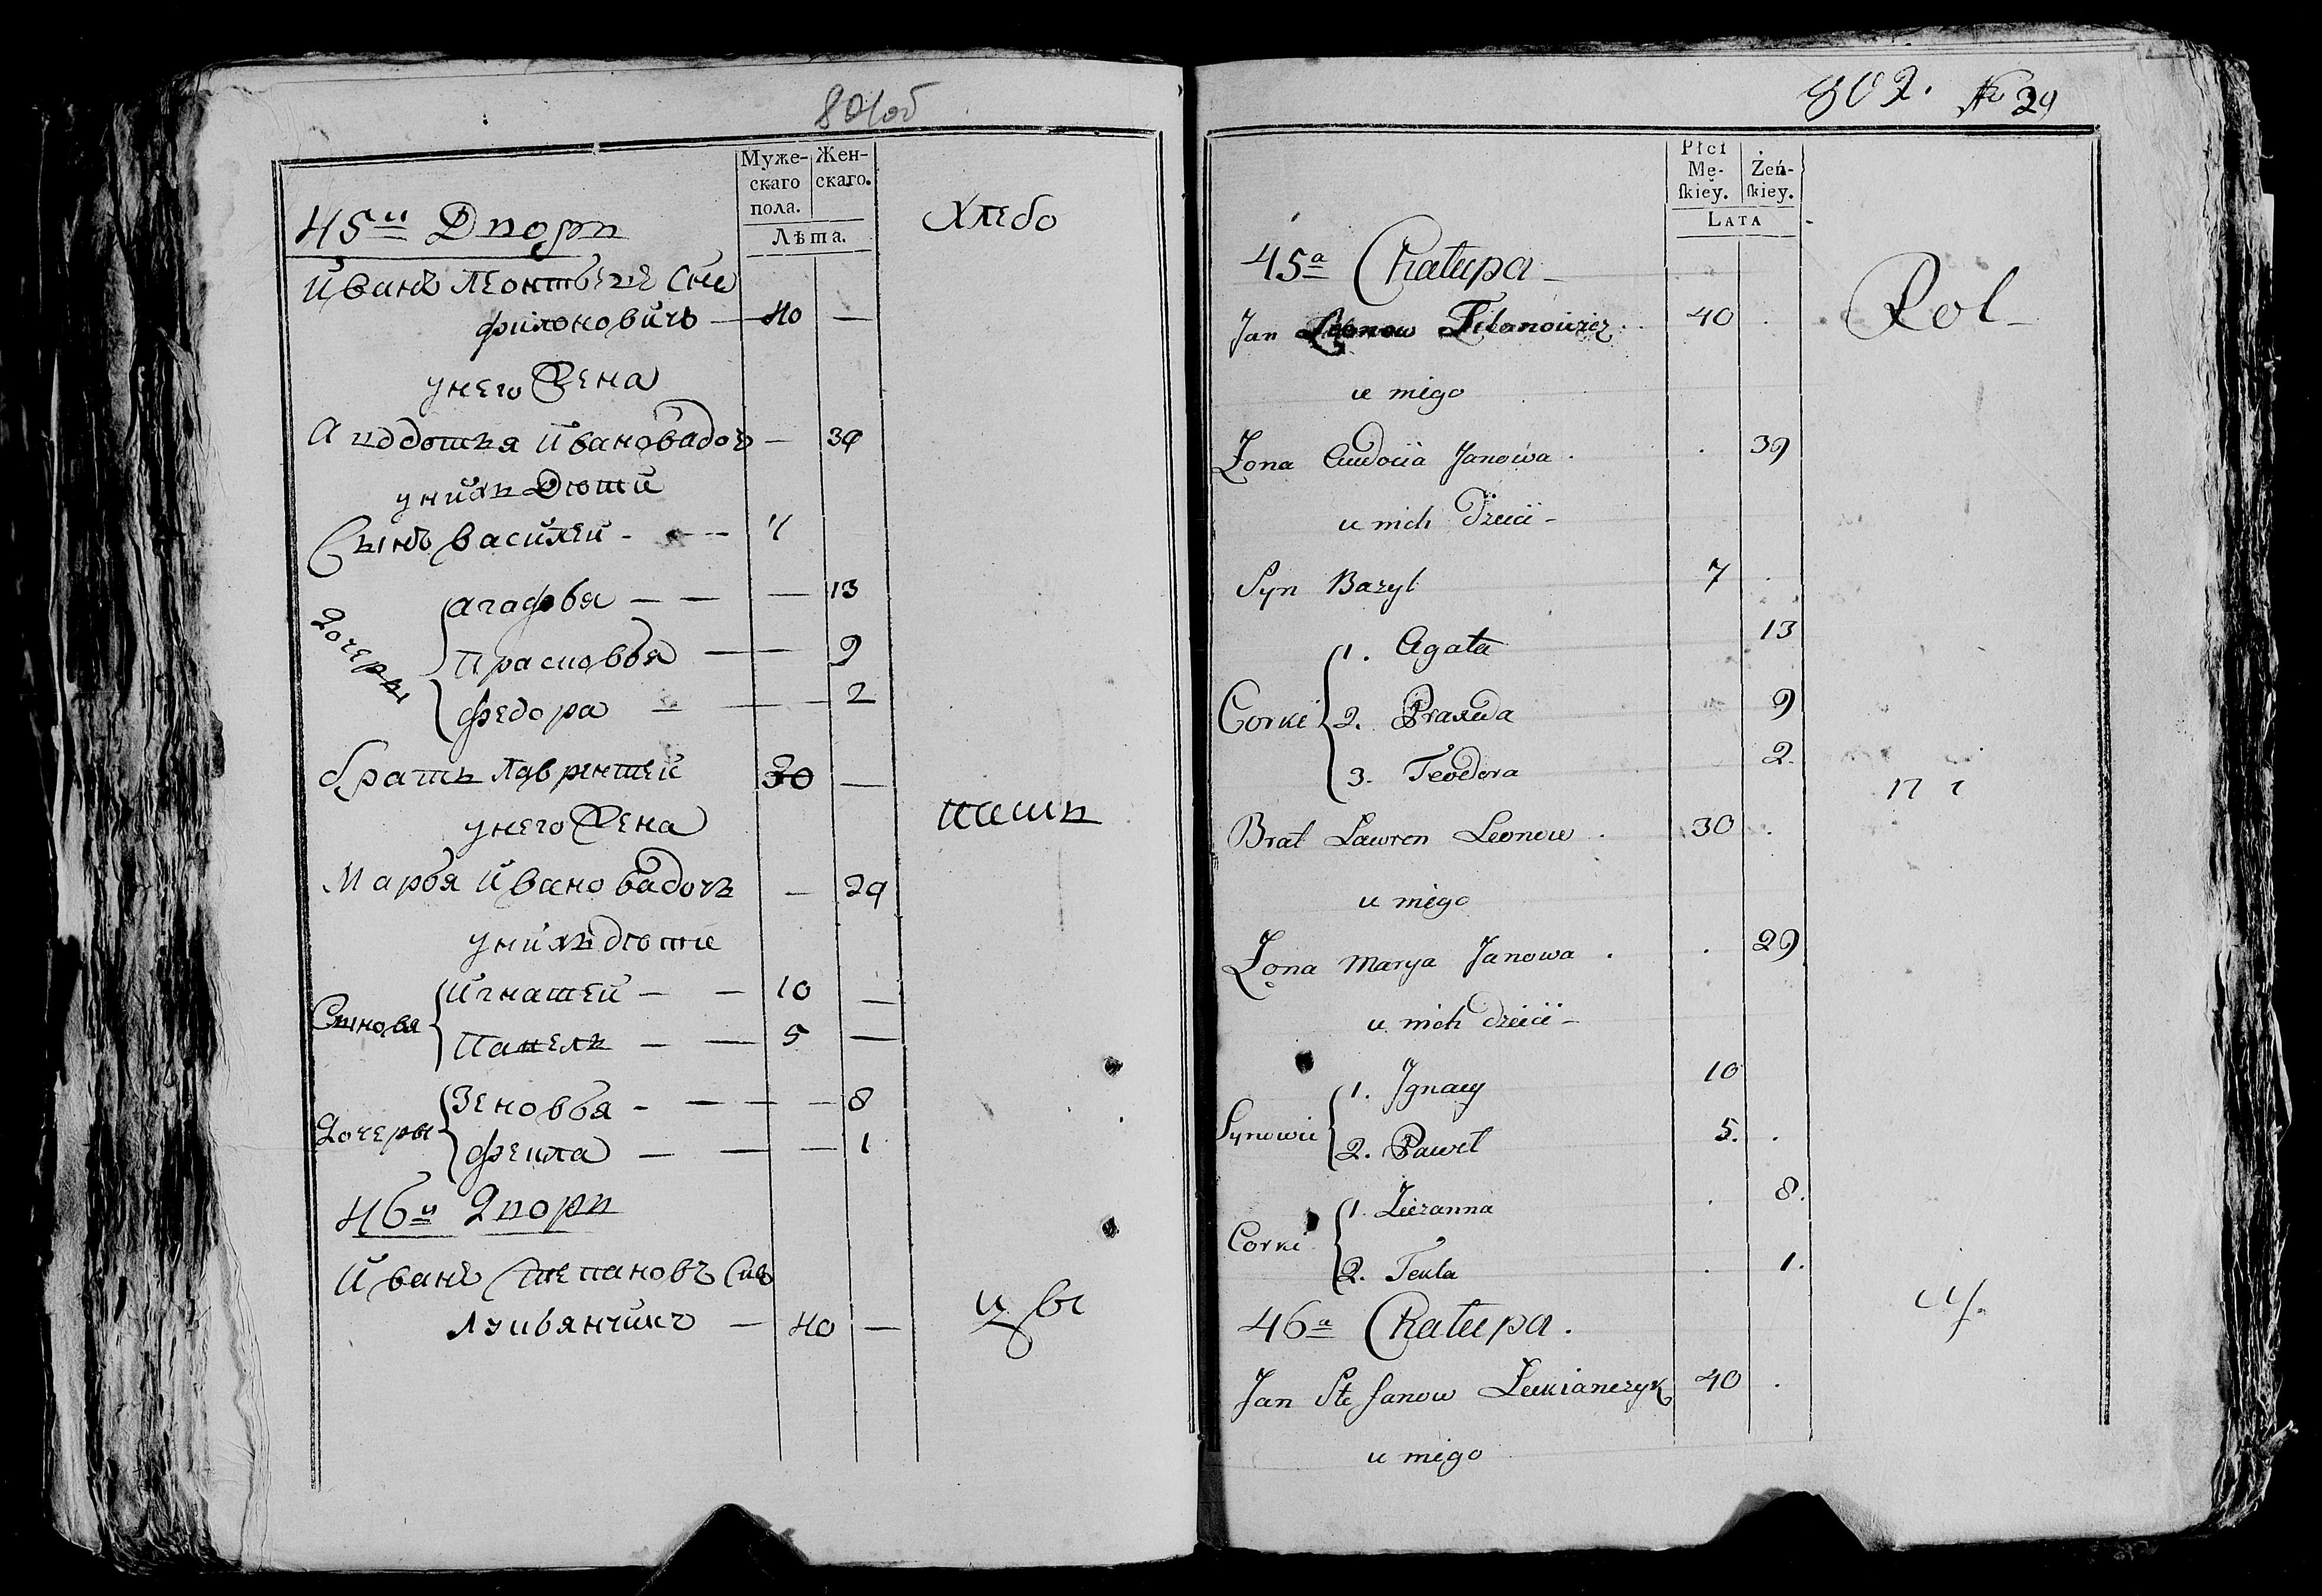 801об
Муже-
скаго
пола.
Жен-
скаго.
Лѣта.
45й Дворъ
Иванъ Леонтьевъ Сынъ
Филоновичъ — 40 —
унего Жена
Авдотья Иванова дочь — 39
унихъ Дѣти
Сынъ Василей - — — 7
Дочеры
Агафья — — — 13
Прасковья — — 9
Федора — — — 2
братъ Лаврентей 30 —
унего Жена
Марья Иванова дочь — 29
унихъ дѣти
Сыновя
Игнатей — — 10 —
Павелъ — — 5 —
Дочеры
Зеновья - — — — 8
Фекла — — — 1
46й Дворъ
Иванъ Степановъ Сынъ
Лукьянчикъ — 40 —
Хлебо
паш
цы
802. № 29
Płci
Mę-
ſkiey.
Żeń-
ſkiey.
LATA
45a Chałupa
Jan Leonow Filonowicz . 40 .
u niego
Żona Audocia Janowa . . 39
u nich Dzieci -
Syn Bazyl 7 .
Corki
1. Agata 13
2. Praxeda 9
3. Teodora 2.
Brat Lawren Leonow . 30 .
u niego
Żona Marya Janowa . . 29
u nich dzieci -
Synowie
1. Jgnacy 10
2. Paweł 5. .
Corki
1. Zuzanna . 8.
2. Tekla . 1.
46a Chałupa .
Jan Stefanow Lukianczyk 40 .
u niego
Rol
ni
cy.